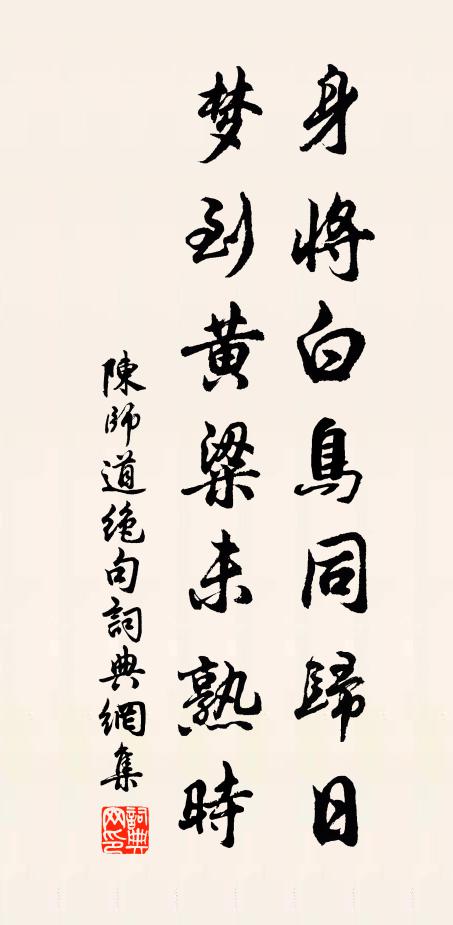 身將白鳥同歸日
梦到黄粱未熟時
陳師道绝句詞典網集
詞典网印